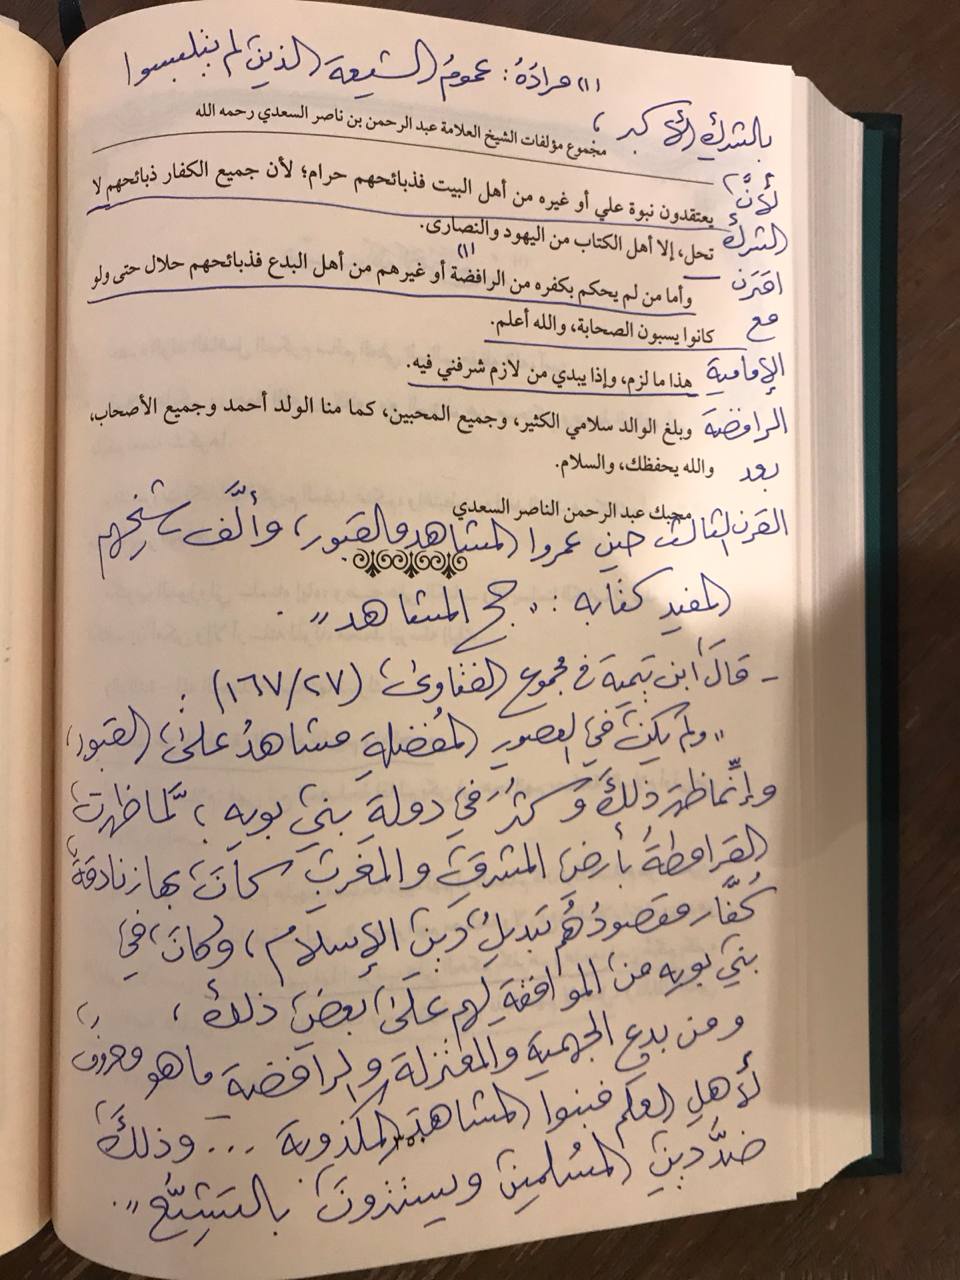 (١) مرادَهُ: عمومُ الشيعة الذين لم يتلبسوا
بالشرك الأكبر،
مجموع مؤلفات الشيخ العلامة عبد الرحمن بن ناصر السعدي رحمه الله
لأنَّ
يعتقدون نبوة علي أو غيره من أهل البيت فذبائحهم حرام؛ لأن جميع الكفار ذبائحهم لا
الشرك
تحل، إلا أهل الكتاب من اليهود والنصارى.
اقترن
وأما من لم يحكم بكفره من الرافضة (١) أو غيرهم من أهل البدع فذبائحهم حلال حتى ولو
مع
كانوا يسبون الصحابة، والله أعلم.
الإمامية
هذا ما لزم، وإذا يبدي من لازم شرفني فيه.
الرافضة
وبلغ الوالد سلامي الكثير، وجميع المحبين، كما منا الولد أحمد وجميع الأصحاب،
بعد
والله يحفظك، والسلام.
محبك عبد الرحمن الناصر السعدي
القرن الثالث حين عمروا المشاهد والقبور، وألَّف شيخهم
المفيد كتابه: "حج المشاهد".
- قال ابن تيمية في مجموع الفتاوى (١٦٧/٢٧):
"ولم يكن في العصور المُفضلة مشاهدُ على القبور،
وإنِّما ظهر ذلك وَكثُرَ في دولة بني بويه؛ لمَّا ظهرت
القرامطةُ بأرض المشرق والمغرب كان بها زنادقةٌ
كُفَّار مقصودُهُم تبديلُ دين الإسلام، وكان في
بني بويه من الموافقة لهم على بعض ذلك،
ومن بدع الجهمية والمعتزلة والرافضة ما هو معروف
لأهل العلم فبنوا المشاهد المكذوبة ... وذلك
ضدَّ دين المسلمين ويستترون بالتشيُّع".